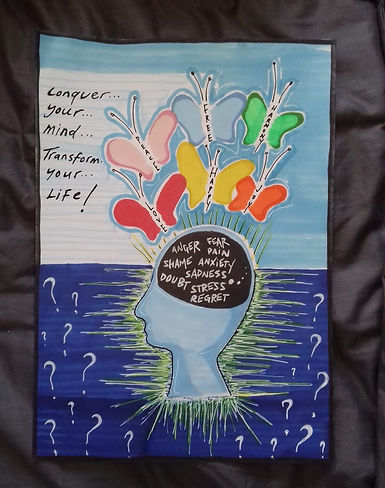 Conquer...
your...
Mind...
Transform.
your...
Life!
PEACE
FREE
HARMONY
LOVE
HAPPY
JOY
ANGER FEAR
PAIN
SHAME ANXIETY
SADNESS
DOUBT STRESS
REGRET
? ? ? ? ? ? ? ? ? ? ? ? ?